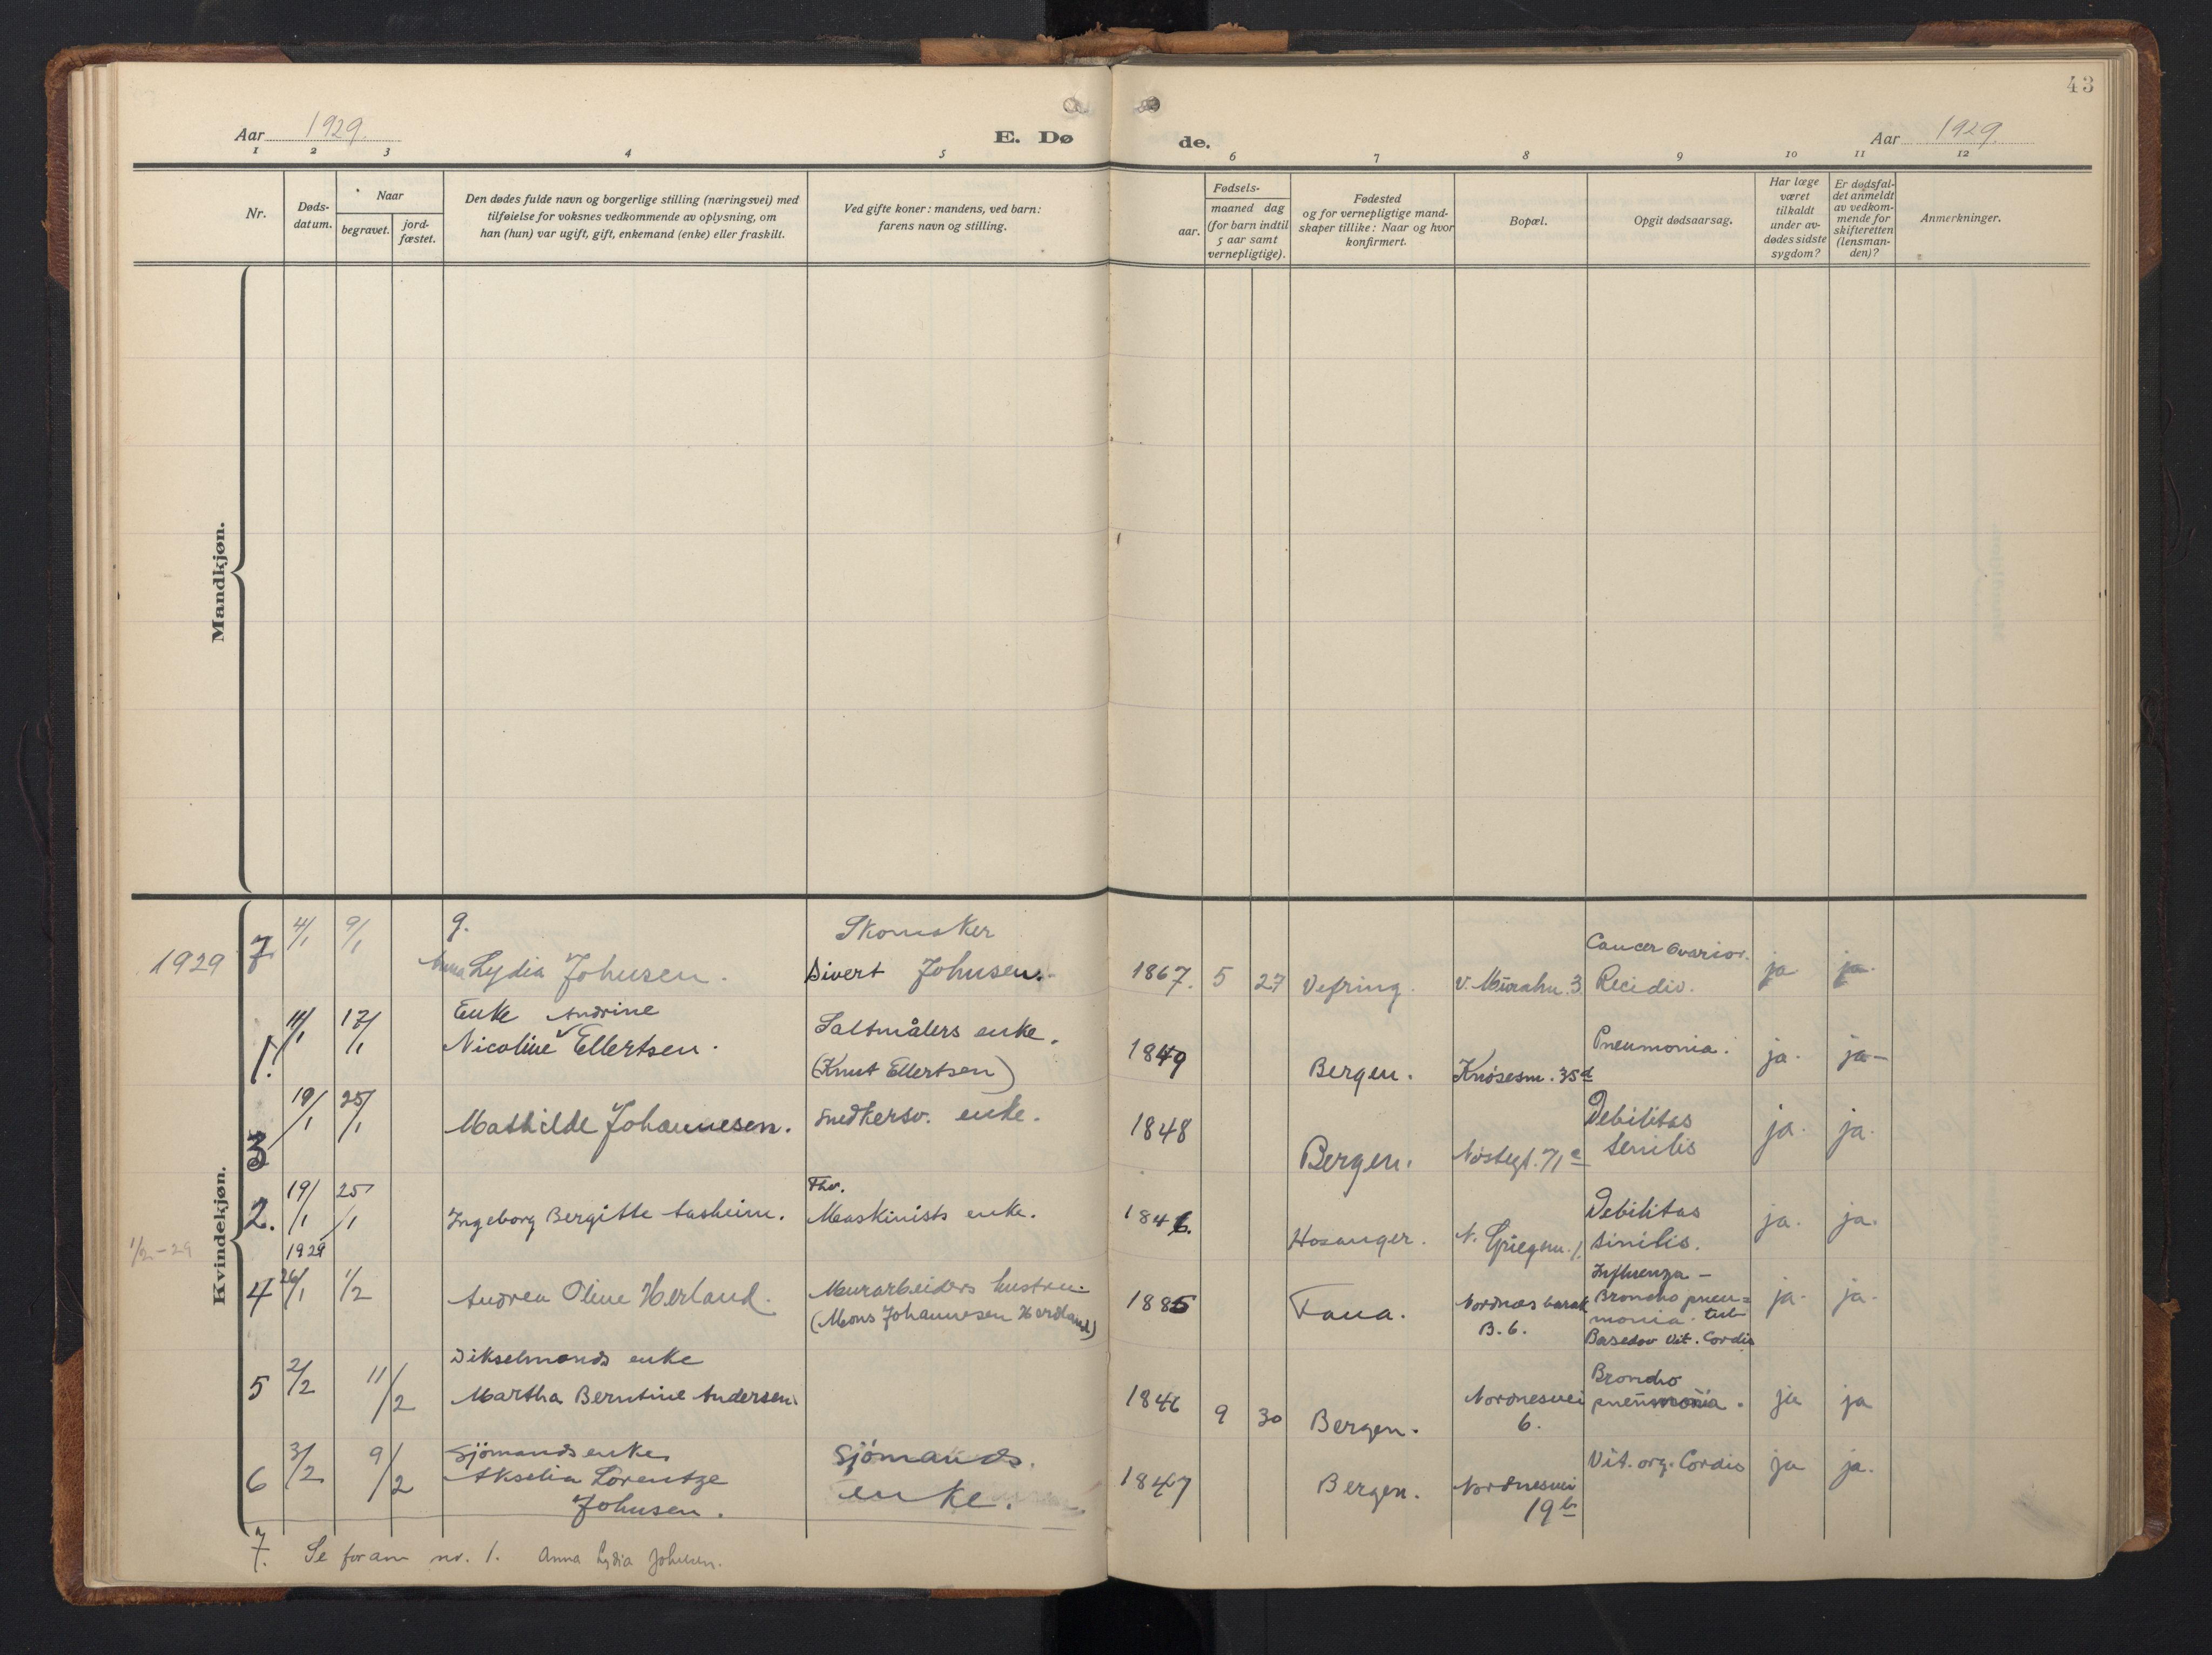 43
Aar 1929.
E. Dø
de.
Aar 1929.
1 2 3 4 5 6 7 8 9 10 11 12
Nr.
Døds-
datum.
Naar
begravet.
jord-
fæstet.
Den dødes fulde navn og borgerlige stilling (næringsvei) med
tilføielse for voksnes vedkommende av oplysning, om
han (hun) var ugift, gift, enkemand (enke) eller fraskilt.
Ved gifte koner: mandens, ved barn:
farens navn og stilling.
aar.
Fødsels-
maaned dag
(for barn indtil
5 aar samt
vernepligtige).
Fødested
og for vernepligtige mand-
skaper tillike: Naar og hvor
konfirmert.
Bopæl.
Opgit dødsaarsag.
Har læge
været
tilkaldt
under av-
dødes sidste
sygdom?
Er dødsfal-
det anmeldt
av vedkom-
mende for
skifteretten
(lensman-
den)?
Anmerkninger.
Mandkjøn.
Kvindekjøn.
1929
7 4/1 9/1 g.
Anna Lydia Johnsen.
Skomaker
Sivert Johnsen.
1867. 5 27 Vefring. V. Muralm. 3.
Cancer Ovarior.
Recidiv.
ja ja.
1. 11/1 17/1 Enke Andrine
Nicoline Ellertsen.
Saltmålers enke.
(Knut Ellertsen)
1849 Bergen. Knøsesm. 35d
Pneumonia.
ja. ja-
3 19/1 25/1 Mathilde Johannesen. Snedkersv. enke.
1848 Bergen. Nøstegt. 71c
Debilitas
senilis
ja. ja.
2. 19/1 25/1
1929
Ingeborg Bergitte Aasheim.
Fhv.
Maskinists enke.
1846. Hosanger. N. Griegsm. 1.
Debilitas
sinilis.
ja. ja.
1/2-29
4 26/1 1/2 Andrea Oline Herland.
Murarbeiders hustru.
(Mons Johannesen Herdland)
1885 Fana. Nordnæs barak
B. 6.
Influenza -
Broncho pneu=
monia. tub
Basedov Vit. Cordis
ja. ja.
5 2/2 11/2 Dikselmands enke
Martha Berntine Andersen.
1846 9 30 Bergen. Nordnesvei
6.
Broncho
pneumonia.
ja ja
6 3/2 9/2 Sjömands enke
Akselia Lorentze
Johnsen.
Sjömands.
enke.
1847 Bergen. Nordnesvei
19b
Vit. org. Cordis
ja ja.
7. Se foran nr. 1. Anna Lydia Johnsen.